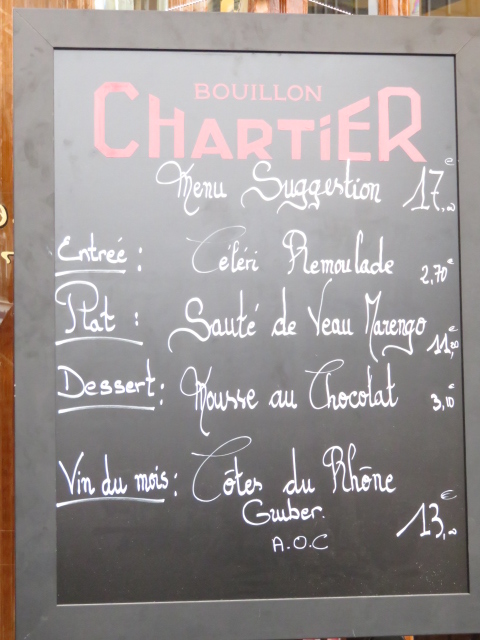 BOUILLON
CHARTIER
Menu Suggestion 17,00€
Entrée : Céléri Remoulade 2,70€
Plat : Sauté de Veau Marengo 11,20€
Dessert : Mousse au Chocolat 3,10€
Vin du mois : Côtes du Rhône
Guiber. 13,00€
A.O.C